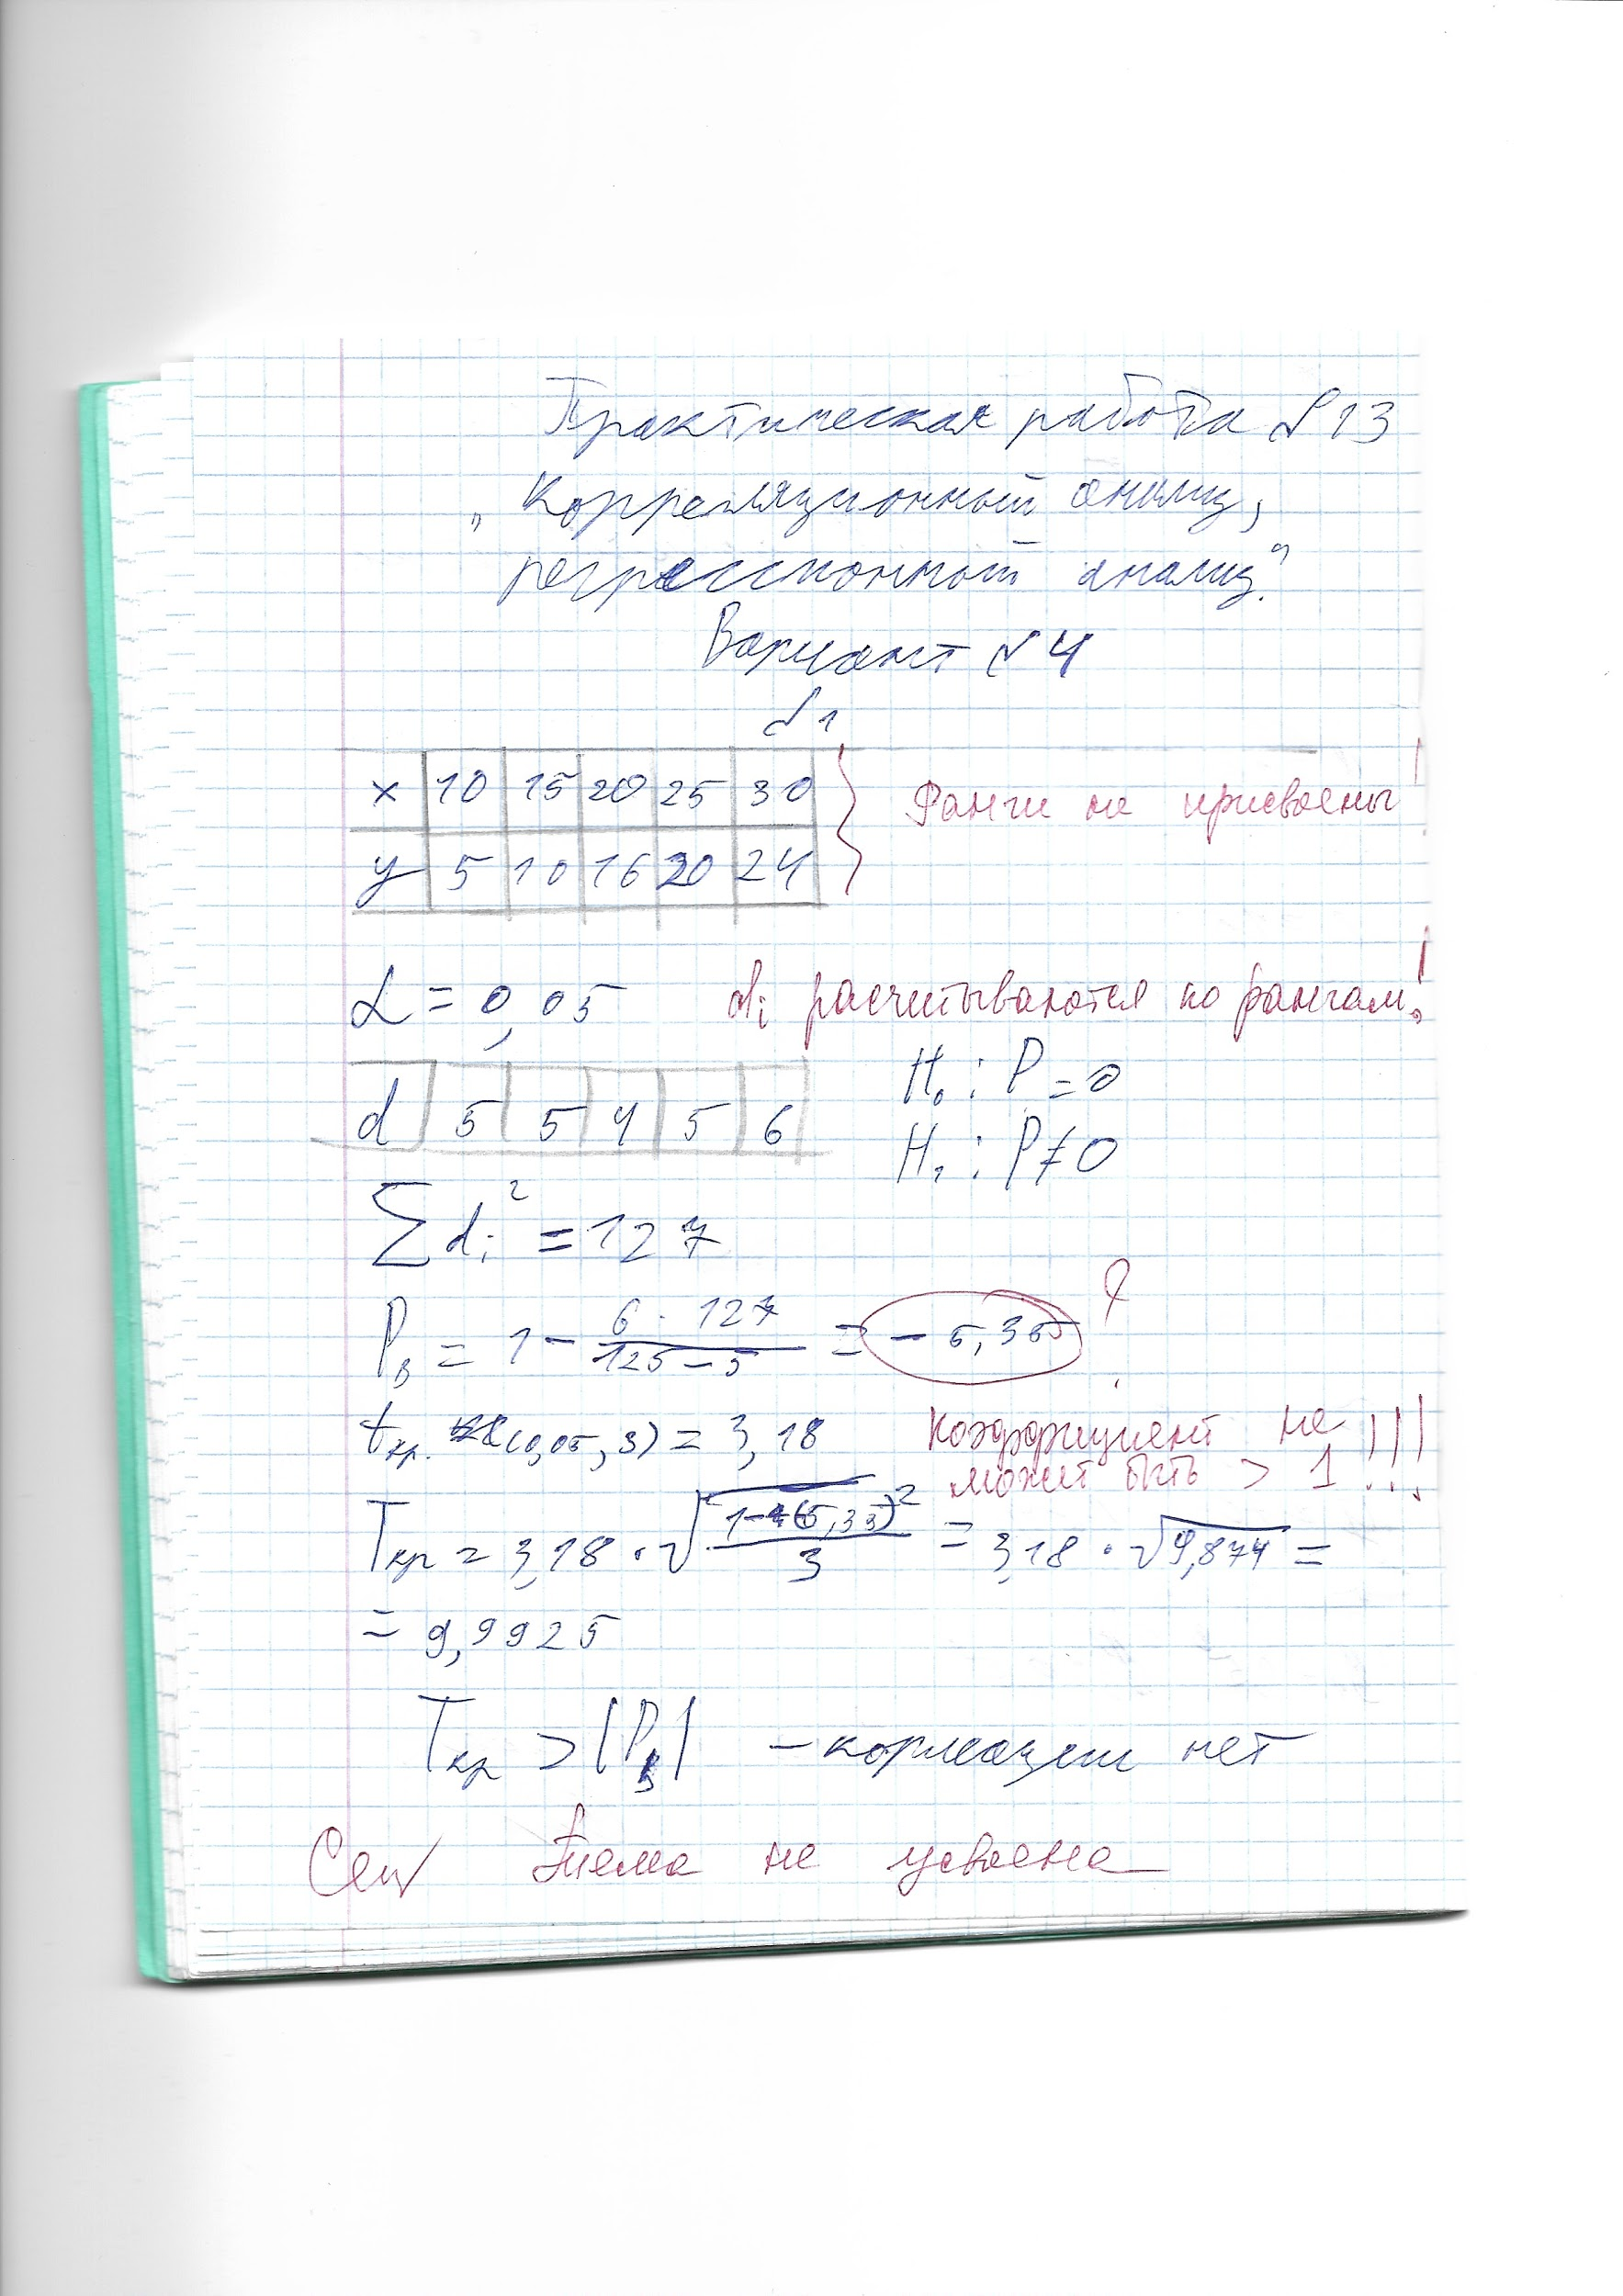 Практическая работа №13
„Корреляционный анализ,
регрессионный анализ."
Вариант №4
№1
x 10 15 20 25 30
y 5 10 16 20 24
Ранги не присвоены!
α = 0,05
di расчитываются по рангам!
d 5 5 4 5 6
H₀ : P = 0
H₁ : P ≠ 0
∑ di² = 127
Pв = 1 − 6 · 127 / 125 − 5 = − 5,35 ?
tкр. (0,05, 3) = 3,18
Коэффициент не
может быть > 1 !!!
Tкр = 3,18 · √ 1−(5,35)² / 3 = 3,18 · √9,874 =
= 9,9925
Tкр > |Pв| – корляции нет
Тема не усвоена